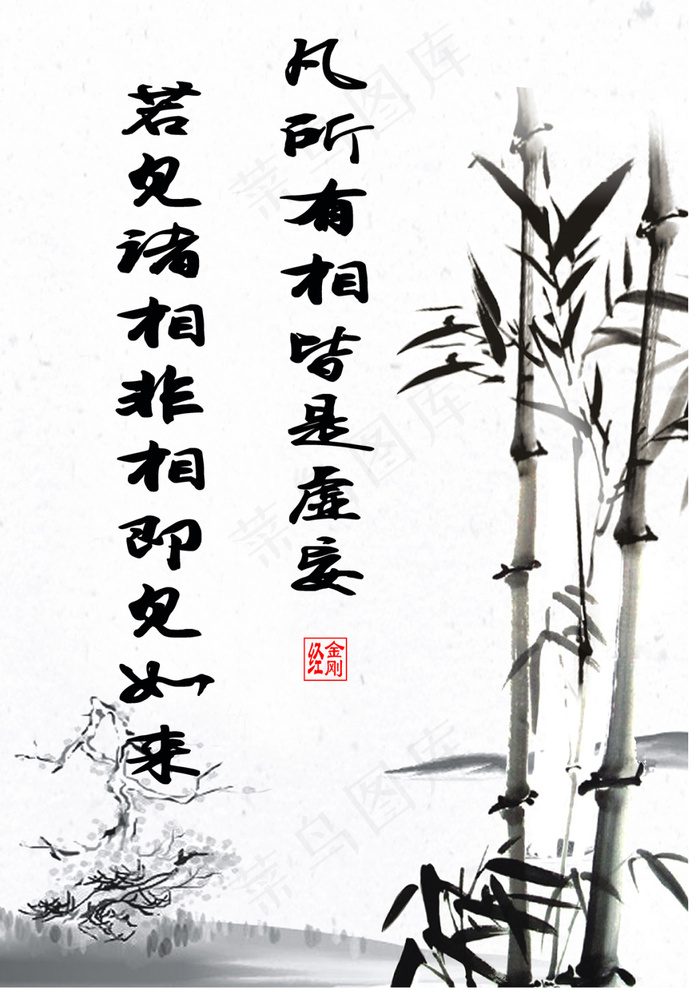 凡所有相皆是虚妄
若见诸相非相即见如来
金刚经
菜鸟图库
菜鸟图库
菜鸟图库
菜鸟图库